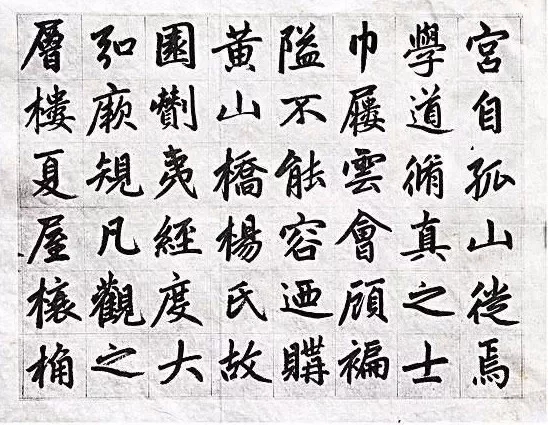 宮自孤山徙焉
學道脩真之士
巾屨雲會顧褊
隘不能容廼購
黃山橋楊氏故
園劗夷經度大
弘厥規凡觀之
層樓夏屋榱桷